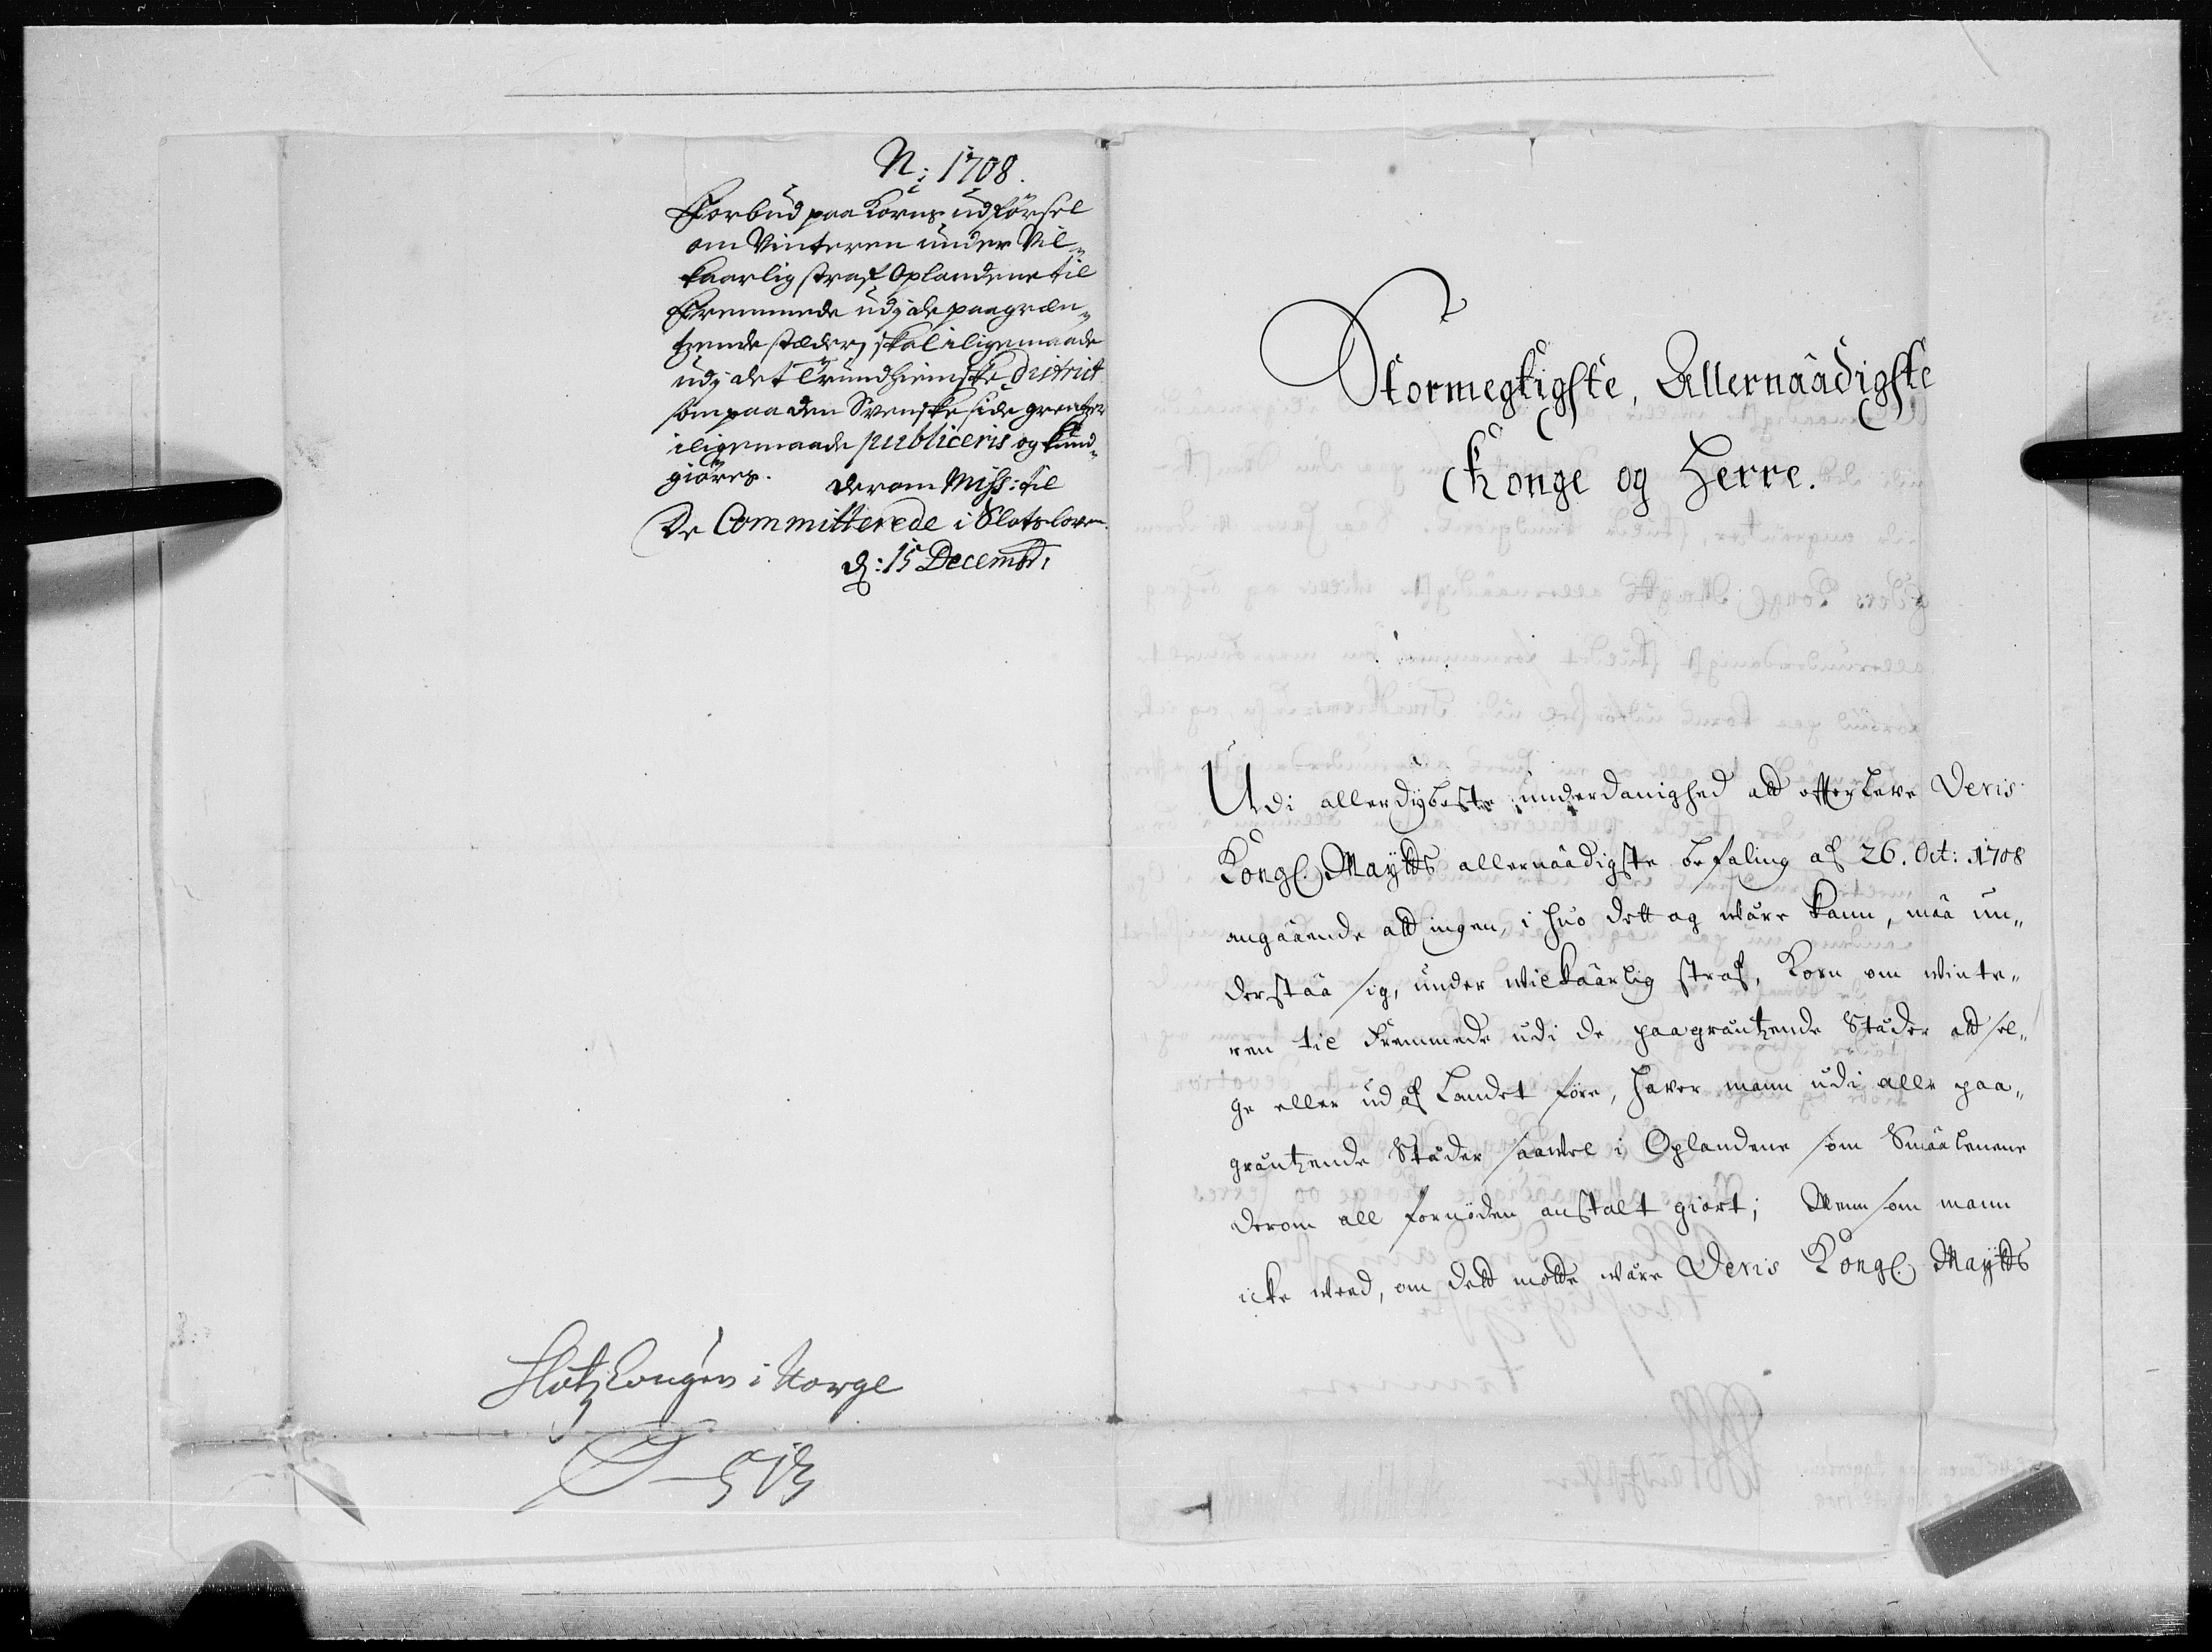 N: 1708.
Forbud paa Korns udførsel
om Vinteren under Vil„
kaarlig straf Oplandene til
Fremmede udj de paagræn„
tzende stæder, skal iligemaade
udj det Trundhiemske District
som paa den Svenske side grentzer
iligemaade publiceris og kund„
giøres. derom Miss: til
De Committerede i Slotsloven.
d: 15 Decembr:
Slotz Lougen i Norge
Stormegtigste, Allernaadigste
Konge og Herre.
Udi allerdybeste underdanighed att efterleve Deris
Kongl. Maytts allernaadigste befaling af 26. Oct: 1708
angaaende att ingen, i hvo dett og være kann, maa un„
derstaa sig, under wilkaarlig straf, Korn om winte„
ren til Fremmede udi de paagræntzende Stæder att sel„
ge eller ud af Landet føre, haver mann udi alle paa„
græntzende Stæder saavel i Oplandene som Smaalenene
derom all fornøden anstalt giort; Menn som mann
icke weed, om dett motte være Deris Kongl. Maytts